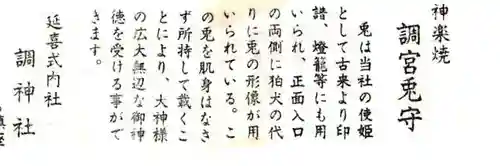 神楽焼
調宮兎守
兎は当社の使姫
として古来より印
譜、燈籠等にも用
いられ、正面入口
の両側に狛犬の代
りに兎の形像が用
いられている。こ
の兎を肌身はなさ
ず所持して戴くこ
とにより、大神様
の広大無辺な御神
徳を受ける事がで
きます。
延喜式内社
調神社